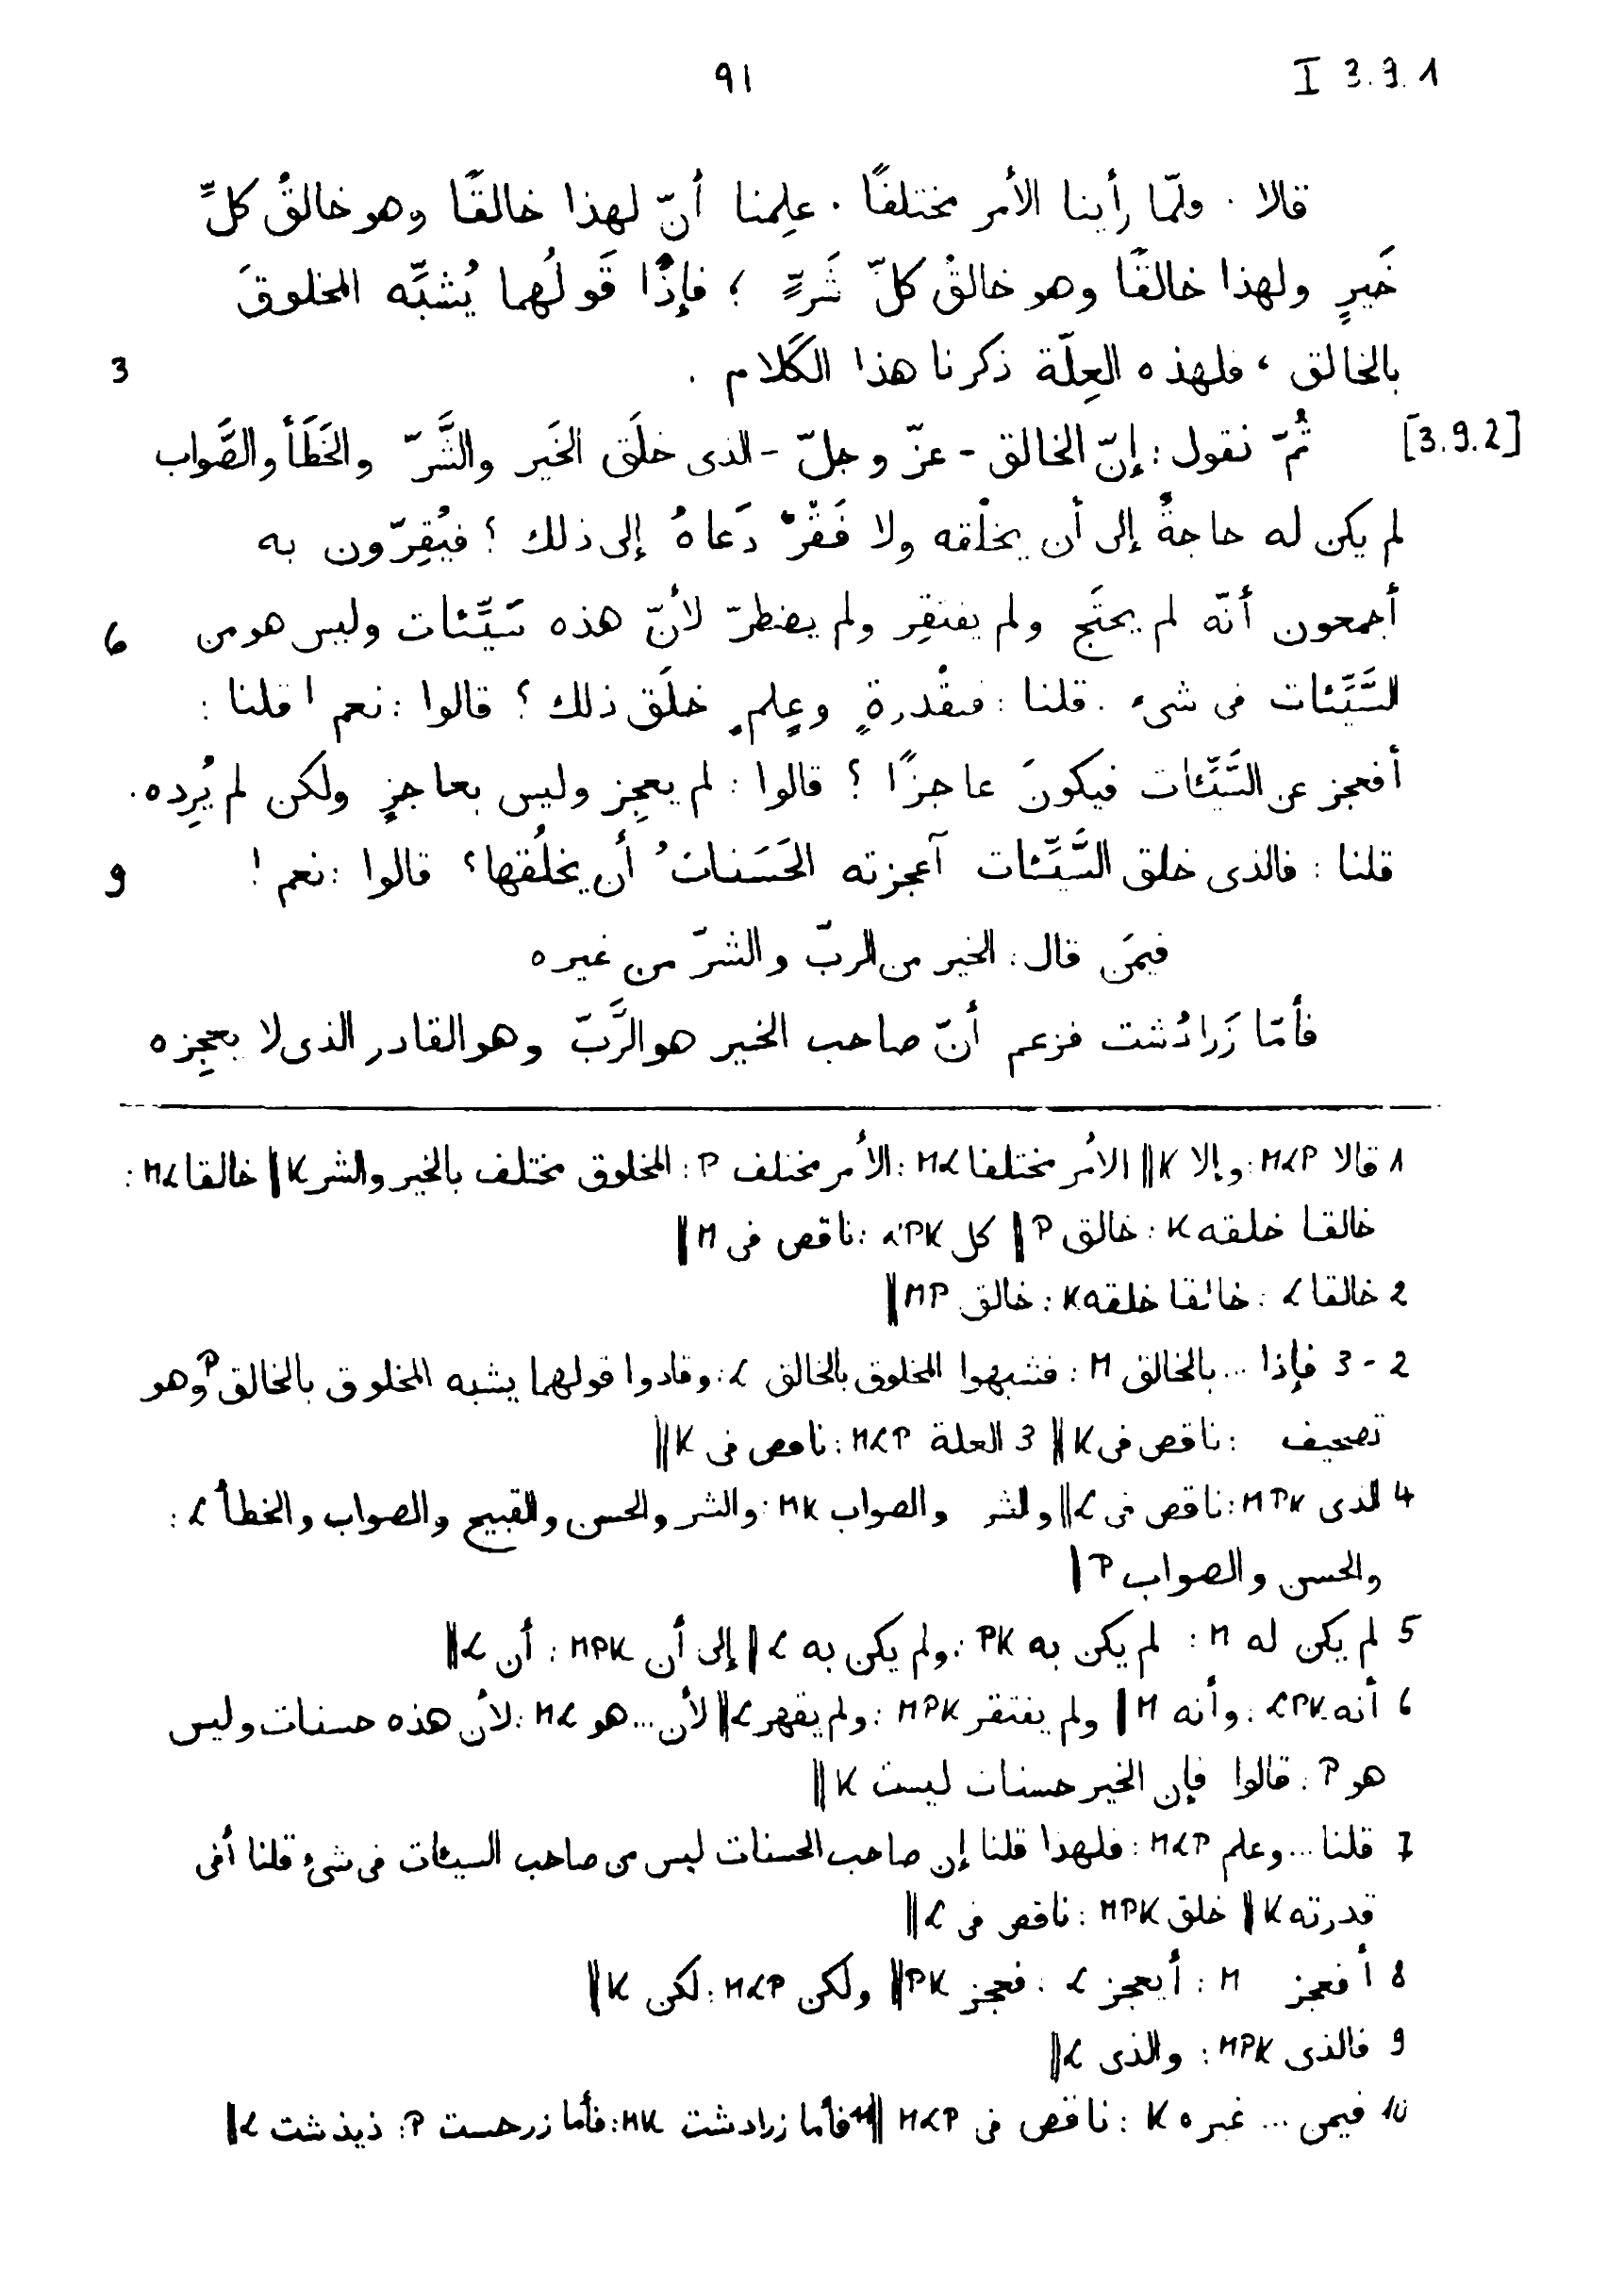 ٩١ I 3.9.1
قالا . ولمّا رأينا الأمر مختلفًا . علِمنا أنّ لهذا خالقًا وهو خالقُ كلِّ
خَيرٍ ولهذا خالقًا وهو خالقُ كلِّ شَرٍّ ؛ فإذًا قَولُهما يُشبَّه المخلوقَ
بالخالق ، فلهذه العِلّة ذكرنا هذا الكَلام . 3
[3.9.2] ثُمّ نقول : إنّ الخالق - عزّ وجلّ - الذى خلَق الخَير والشَّرّ والخَطَأ والصَّواب
لم يكن له حاجةٌ إلى أن يخلقه ولا فَقْرٌ دَعاهُ إلى ذلك ؟ فيُقِرّون به
أجمعون أنّه لم يحتَج ولم يفتقِر ولم يضطرّ لأنّ هذه سَيِّئات وليس هو من 6
السَّيِّئات فى شىء . قلنا : فبقُدرةٍ وعِلمٍ خلَق ذلك ؟ قالوا : نعم ! قلنا :
أفعجز عن السَّيِّئات فيكونَ عاجزًا ؟ قالوا : لم يعجِز وليس بعاجزٍ ولكن لم يُرِده .
قلنا : فالذى خلق السَّيِّئات آعجزته الحَسَناتُ أن يخلُقها ؟ قالوا : نعم ! 9
فيمَن قال : الخير من الربّ والشرّ من غيره
فأمّا زَرادُشت فزعم أنّ صاحب الخير هو الرَّبّ وهو القادر الذى لا يعجِزه
1 قالا MLP : وإلا K ‖ الأمر مختلفا ML : الأمر مختلف P : المخلوق مختلف بالخير والشر K ‖ خالقا ML :
خالقا خلقه K : خالق P ‖ كل LPK : ناقص فى M ‖
2 خالقا L : خالقا خلقه K : خالق MP ‖
2 - 3 فإذا ... بالخالق M : فشبهوا المخلوق بالخالق L : وقادوا قولهما يشبه المخلوق بالخالق P وهو
تصحيف : ناقص فى K ‖ 3 العلة MLP : ناقص فى K ‖
4 الذى MPK : ناقص فى L ‖ والشر والصواب MK : والشر والحسن والقبيح والصواب والخطأ L :
والحسن والصواب P ‖
5 لم يكن له M : لم يكن به PK : ولم يكن به L ‖ إلى أن MPK : أن L ‖
6 أنه LPK : وأنه M ‖ ولم يفتقر MPK : ولم يقهر L ‖ لأن ... هو ML : لأن هذه حسنات وليس
هو P : قالوا فإن الخير حسنات ليست K ‖
7 قلنا ... وعلم MLP : فلهذا قلنا إن صاحب الحسنات ليس من صاحب السيئات فى شىء قلنا أفى
قدرته K ‖ خلق MPK : ناقص فى L ‖
8 أفعجز M : أيعجز L : فعجز PK ‖ ولكن MLP : لكن K ‖
9 فالذى MPK : والذى L ‖
10 فيمن ... غيره K : ناقص فى MLP ‖ 11 فأما زرادشت MK : فأما زرحست P : ذيذشت L ‖